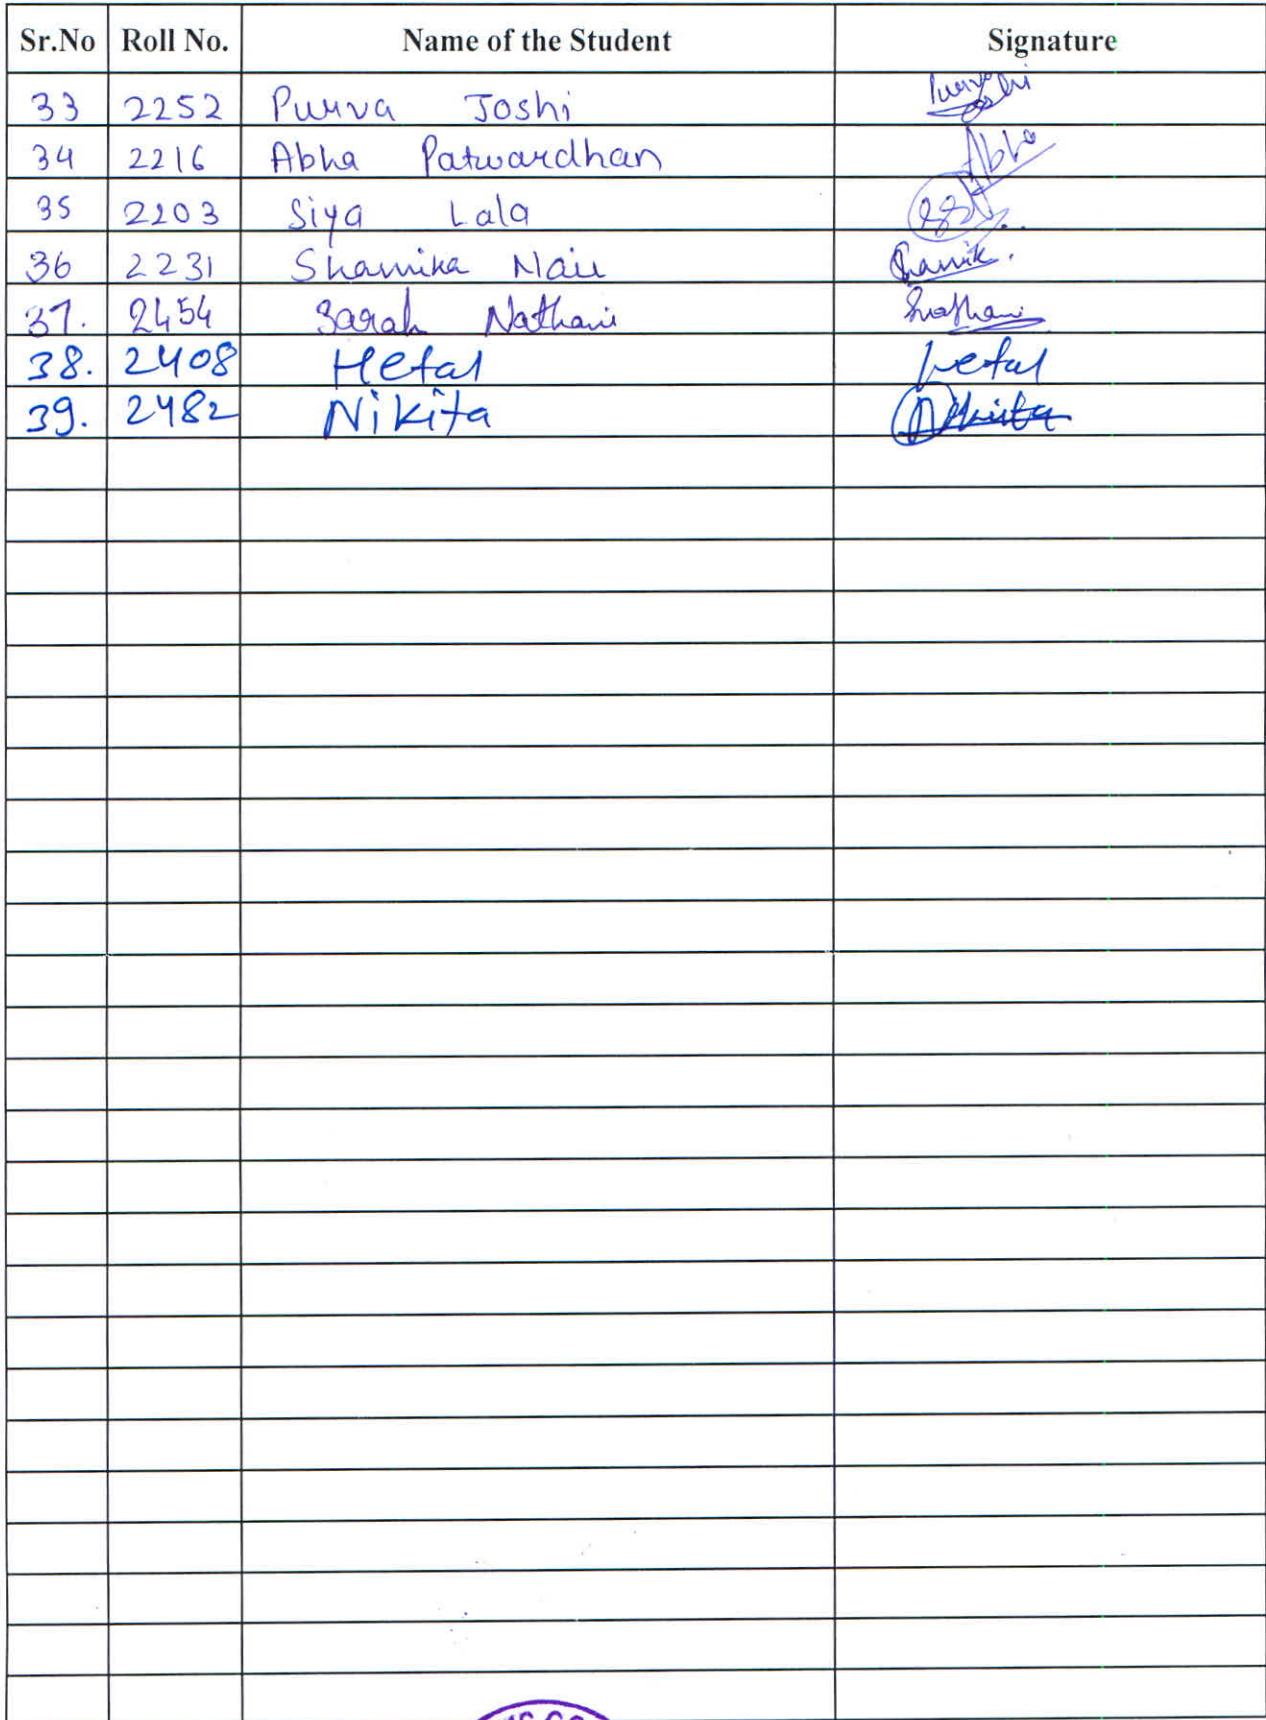 Sr.No Roll No. Name of the Student Signature
33 2252 Purva Joshi Purva Joshi
34 2216 Abha Patwardhan Abha
35 2203 Siya Lala
36 2231 Shamika Nair Shamik.
37. 2454 Sarah Nathani SNathani
38. 2408 Hetal Hetal
39. 2482 Nikita Nikita